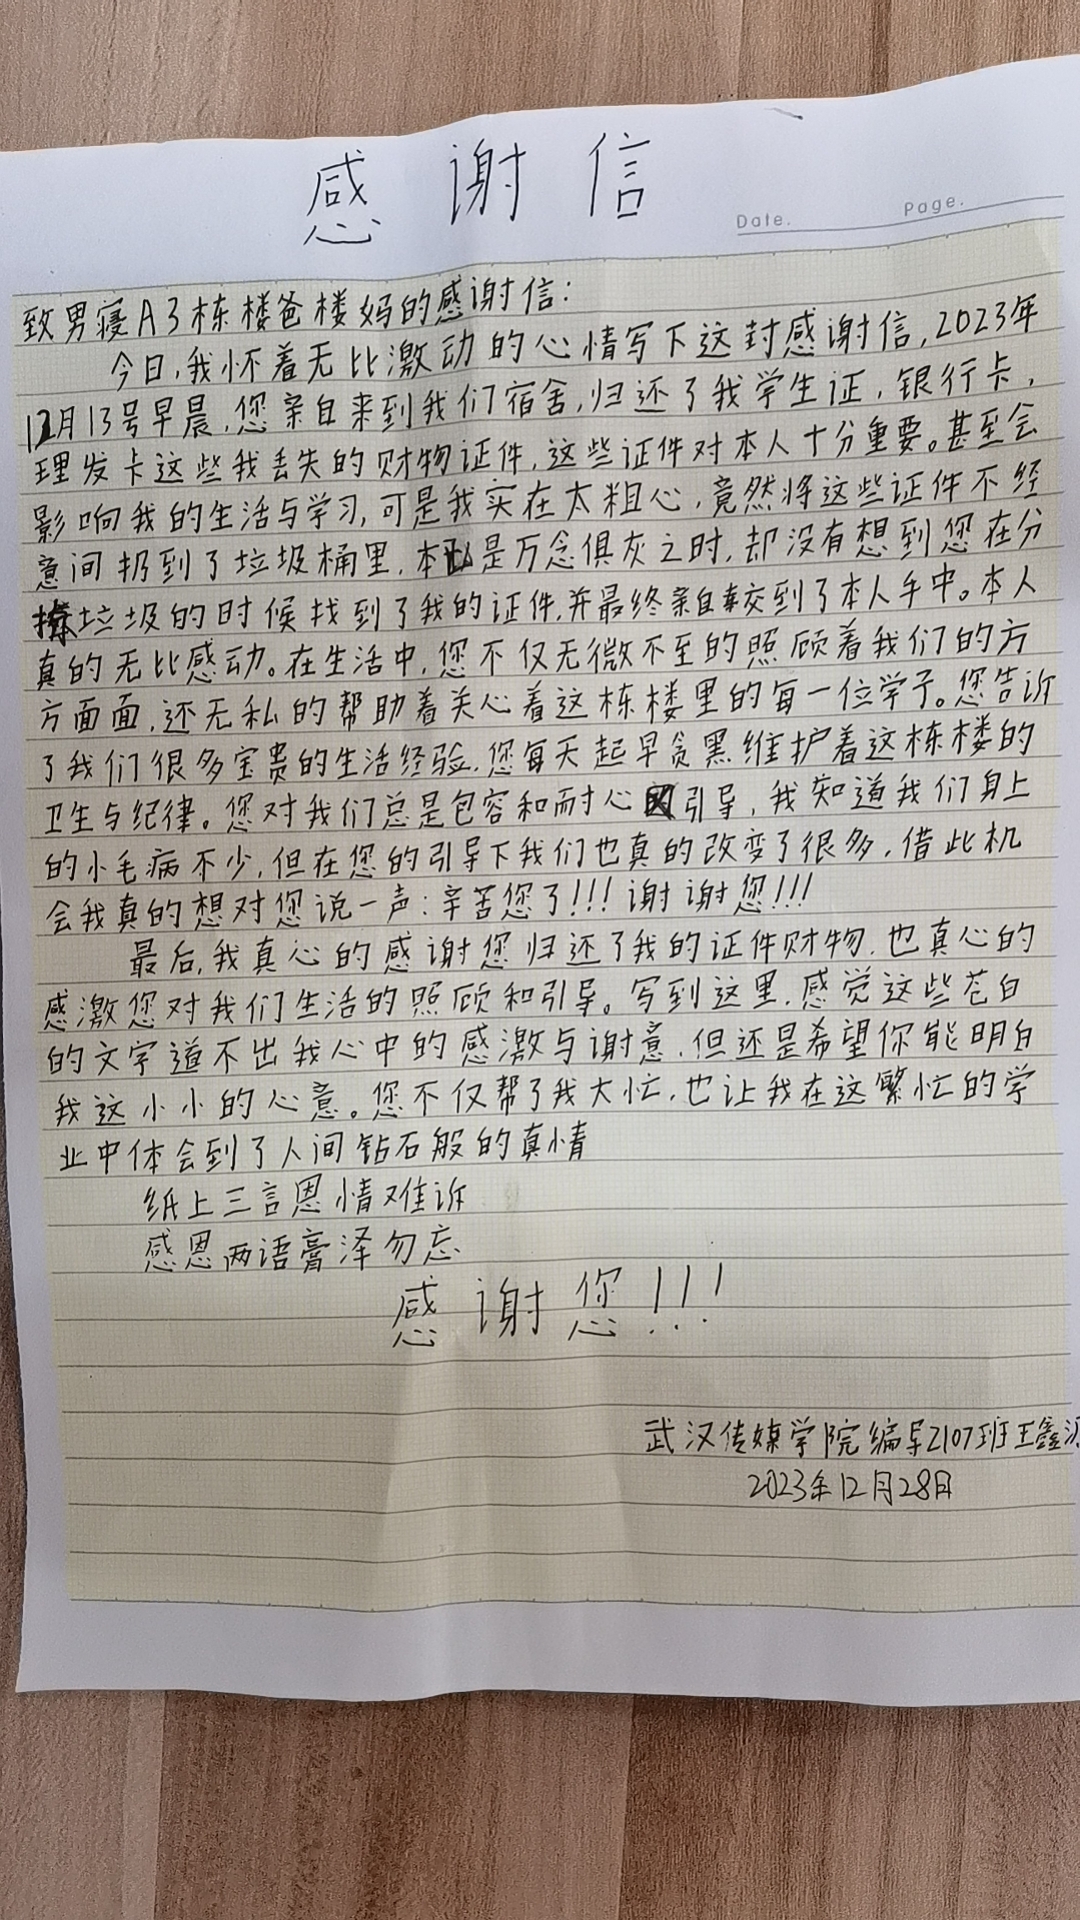 感谢信
Date.
Page.
致男寝A3栋楼爸楼妈的感谢信：
今日，我怀着无比激动的心情写下这封感谢信，2023年
12月13号早晨，您亲自来到我们宿舍，归还了我学生证，银行卡，
理发卡这些我丢失的财物证件，这些证件对本人十分重要。甚至会
影响我的生活与学习，可是我实在太粗心，竟然将这些证件不经
意间扔到了垃圾桶里，本是万念俱灰之时，却没有想到您在分
垃圾的时候找到了我的证件，并最终亲自交到了本人手中。本人
真的无比感动。在生活中，您不仅无微不至的照顾着我们的方
方面面，还无私的帮助着关心着这栋楼里的每一位学子。您告诉
了我们很多宝贵的生活经验，您每天起早贪黑维护着这栋楼的
卫生与纪律。您对我们总是包容和耐心引导，我知道我们身上
的小毛病不少，但在您的引导下我们也真的改变了很多，借此机
会我真的想对您说一声：辛苦您了！！！谢谢您！！！
最后，我真心的感谢您归还了我的证件财物，也真心的
感激您对我们生活的照顾和引导。写到这里，感觉这些苍白
的文字道不出我心中的感激与谢意，但还是希望你能明白
我这小小的心意。您不仅帮了我大忙，也让我在这繁忙的学
业中体会到了人间钻石般的真情
纸上三言恩情难诉
感恩两语膏泽勿忘
感谢您！！！
武汉传媒学院编导2107班王鑫
2023年12月28日